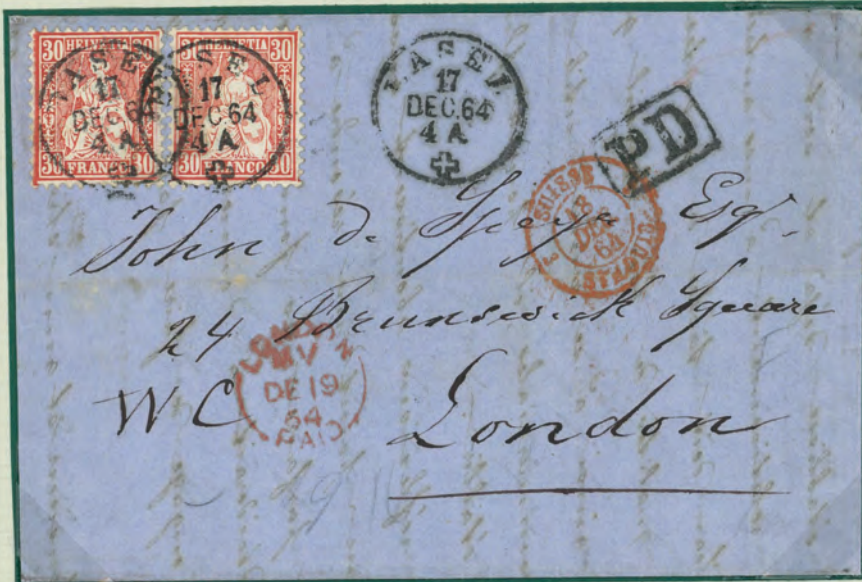 30 HELVETIA 30
30 HELVETIA 30
30 FRANCO 30
30 FRANCO 30
BASEL
17
DEC.64
4 A
BASEL
17
DEC.64
4 A
BASEL
17
DEC.64
4 A
PD
SUISSE
18
DEC
64
3 STRASB
John d. Speyr Esqr.
24 Brunswick Square
W C London
LONDON
MV
DE 19
64
PAID